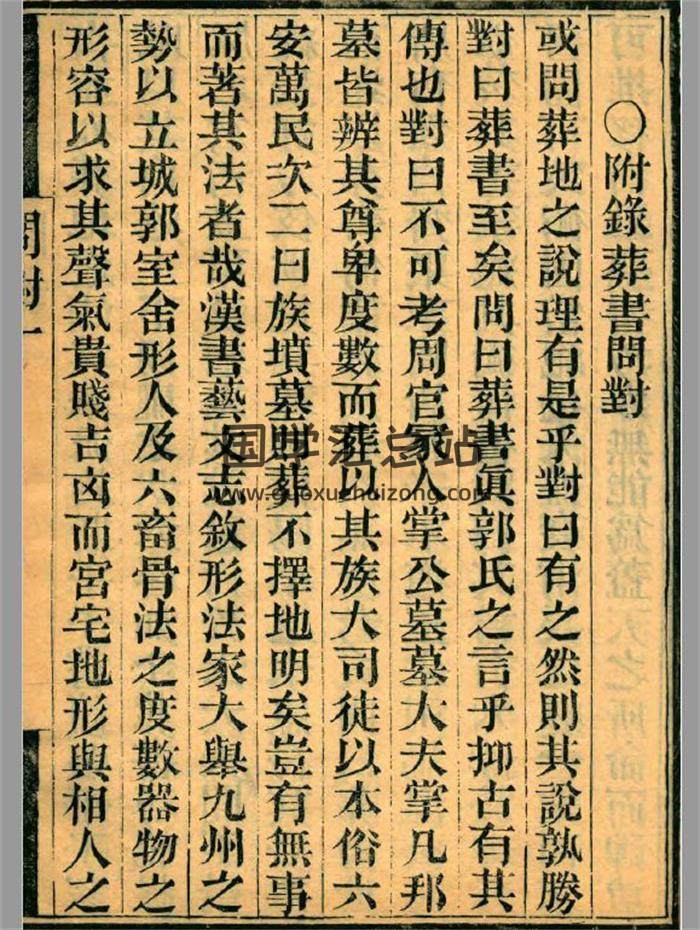 〇附錄葬書問對
或問葬地之說理有是乎對曰有之然則其說孰勝
對曰葬書至矣問曰葬書眞郭氏之言乎抑古有其
傳也對曰不可考周官冢人掌公墓墓大夫掌凡邦
墓皆辨其尊卑度數而葬以其族大司徒以本俗六
安萬民次二曰族墳墓則葬不擇地明矣豈有無事
而著其法者哉漢書藝文志敘形法家大舉九州之
勢以立城郭室舍形人及六畜骨法之度數器物之
形容以求其聲氣貴賤吉凶而宮宅地形與相人之
問對一
国学汇总站
www.guoxuezhuizong.com